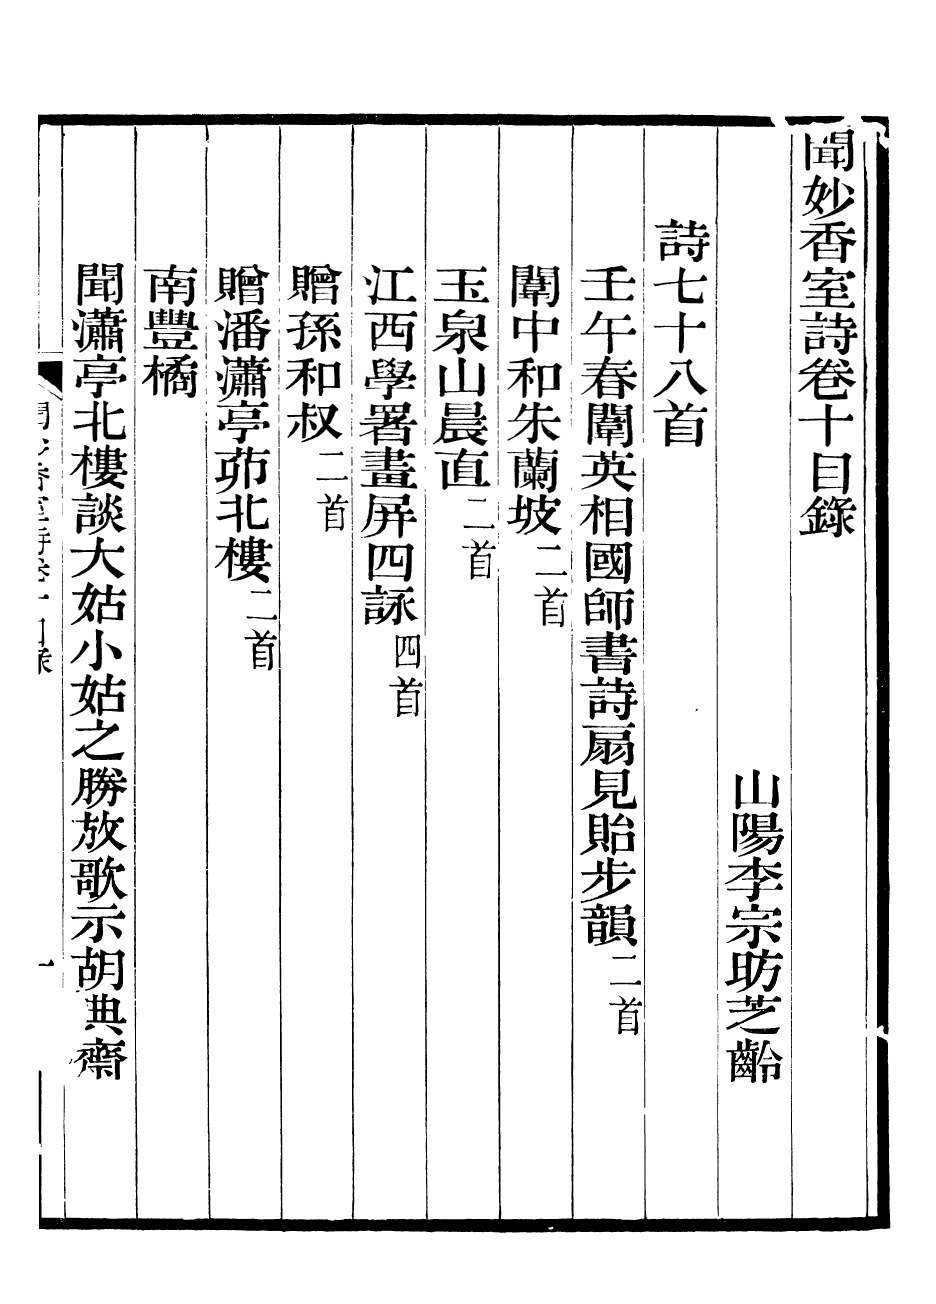 聞妙香室詩卷十目錄
山陽李宗昉芝齡
詩七十八首
壬午春闈英相國師書詩扇見貽步韻二首
闈中和朱蘭坡二首
玉泉山晨直二首
江西學署畫屏四詠四首
贈孫和叔二首
贈潘瀟亭茆北樓二首
南豐橘
聞瀟亭北樓談大姑小姑之勝放歌示胡典齋
聞妙香室詩卷十目錄
一